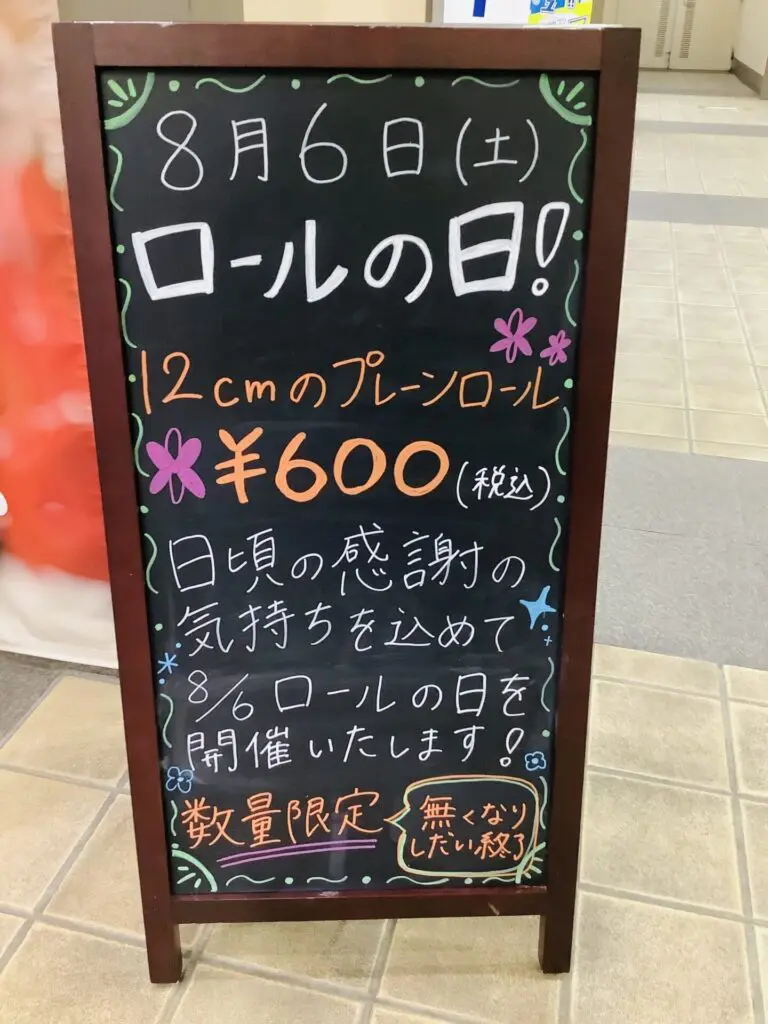 8月6日(土)
ロールの日!
12cmのプレーンロール
¥600(税込)
日頃の感謝の
気持ちを込めて
8/6 ロールの日を
開催いたします!
数量限定
無くなり
しだい終了